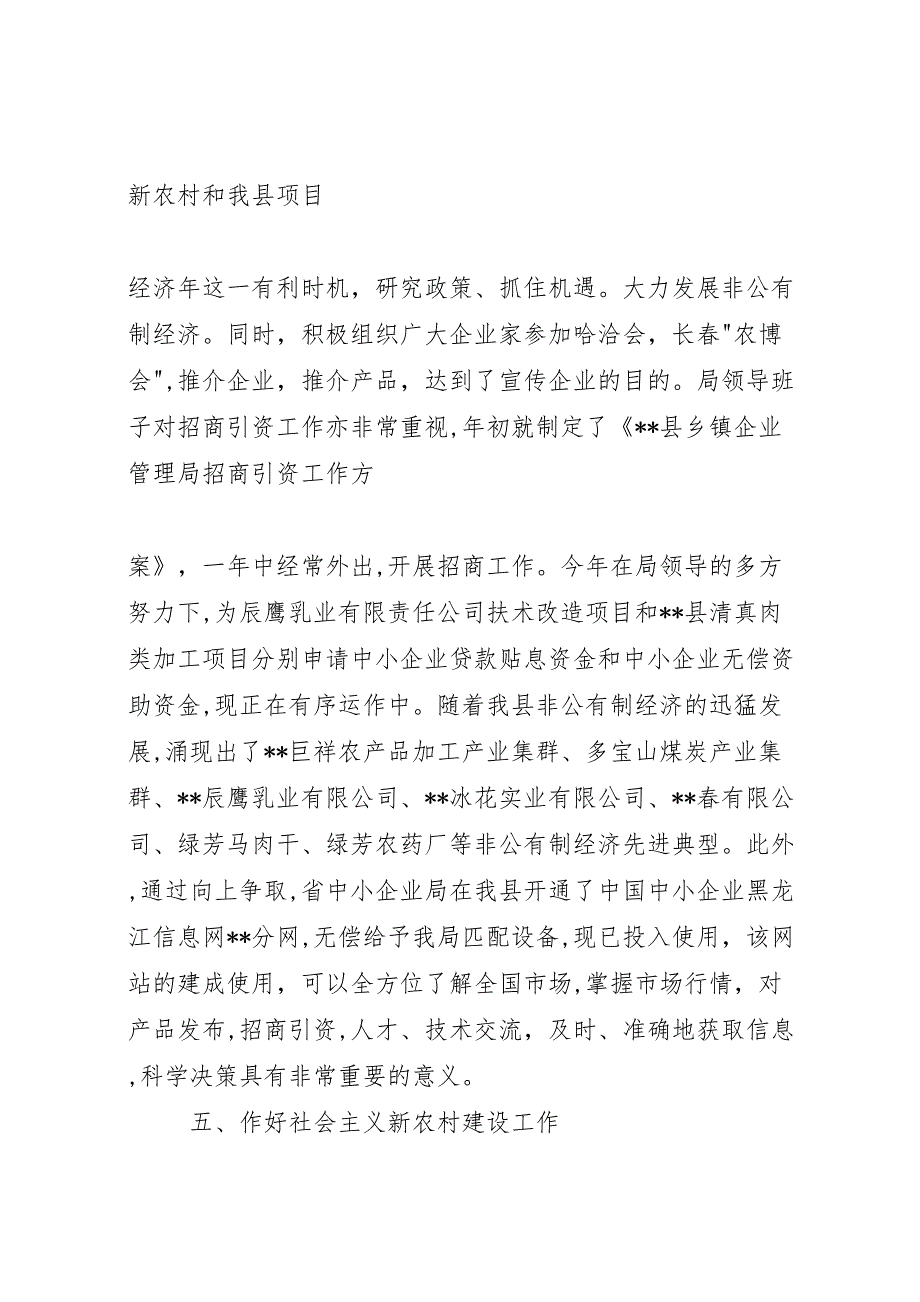 新农村和我县项目
经济年这一有利时机，研究政策、抓住机遇。大力发展非公有
制经济。同时，积极组织广大企业家参加哈洽会，长春"农博
会",推介企业，推介产品，达到了宣传企业的目的。局领导班
子对招商引资工作亦非常重视,年初就制定了《**县乡镇企业
管理局招商引资工作方
案》，一年中经常外出,开展招商工作。今年在局领导的多方
努力下,为辰鹰乳业有限责任公司扶术改造项目和**县清真肉
类加工项目分别申请中小企业贷款贴息资金和中小企业无偿资
助资金,现正在有序运作中。随着我县非公有制经济的迅猛发
展,涌现出了**巨祥农产品加工产业集群、多宝山煤炭产业集
群、**辰鹰乳业有限公司、**冰花实业有限公司、**春有限公
司、绿芳马肉干、绿芳农药厂等非公有制经济先进典型。此外
,通过向上争取,省中小企业局在我县开通了中国中小企业黑龙
江信息网**分网,无偿给予我局匹配设备,现已投入使用，该网
站的建成使用，可以全方位了解全国市场,掌握市场行情，对
产品发布,招商引资,人才、技术交流，及时、准确地获取信息
,科学决策具有非常重要的意义。
五、作好社会主义新农村建设工作